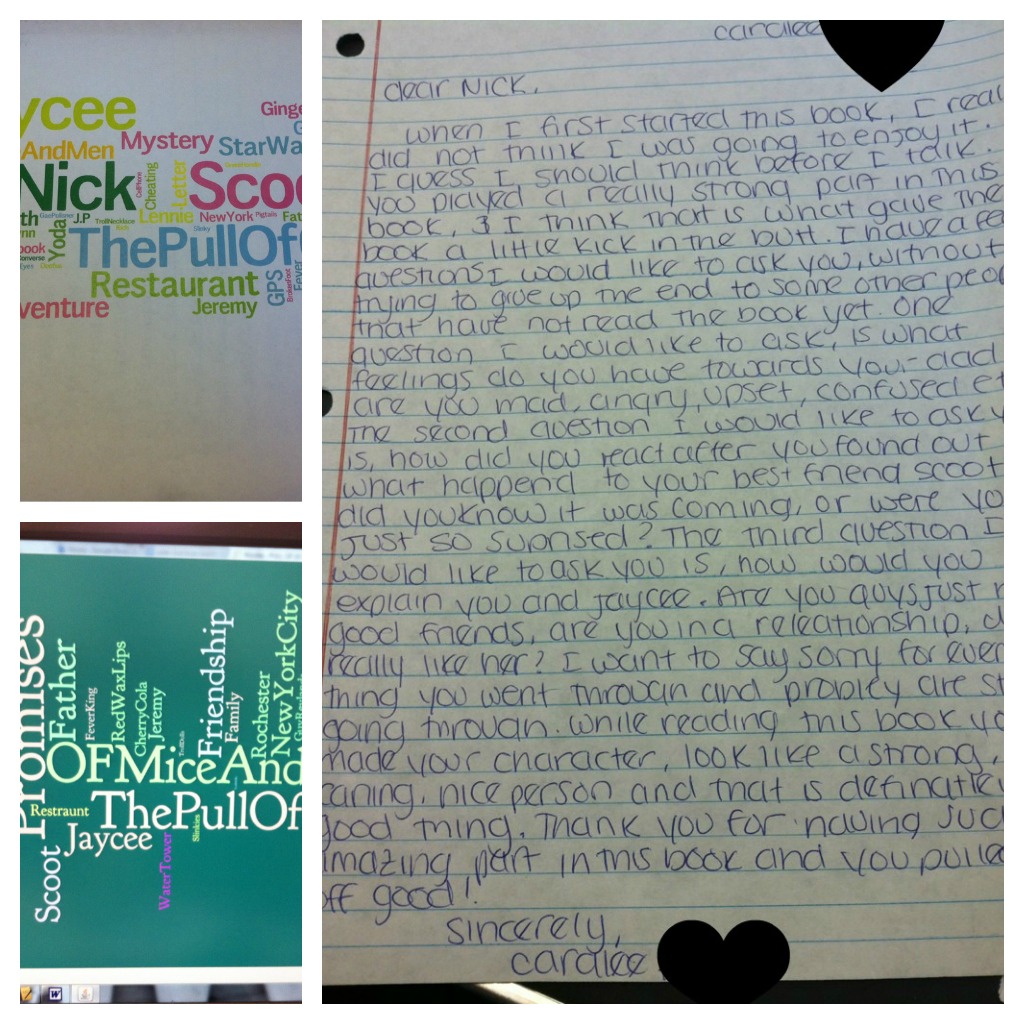 ycee
Ginge
Mystery
AndMen
StarWa
Nick
CallHome
Cheating
Letter
Scoo
th
J.P
TrollNecklace
Lennie
NewYork
Pigtails
Fat
Yoda
Slinky
ook
Converse
Eyes
ThePullOf
Restaurant
GPS
BrokenFoot
Fever
venture
Jeremy
Promises
Father
FeverKing
RedWaxLips
CherryCola
Jeremy
Friendship
Family
Rochester
NewYorkCity
OFMiceAnd
Restraunt
ThePullOf
Scoot
Jaycee
WaterTower
Slinkies
caralee
dear Nick,
when I first started this book, I real
did not think I was going to enjoy it.
I guess I should think before I talk.
you played a really strong part in this
book, & I think that is what gave the
book a little kick in the butt I have a fe
questions I would like to ask you, without
trying to give up the end to some other peop
that have not read the book yet. One
question I would like to ask, is what
feelings do you have towards your dad
are you mad, angry, upset, confused et
The second question I would like to ask y
is, how did you react after you found out
what happend to your best friend scoot
did you know it was coming, or were yo
just so suprised? The third question I
would like to ask you is, how would you
explain you and jaycee. Are you guys just r
good friends, are you in a releationship, d
really like her? I want to say sorry for ever
thing you went through and probley are st
going through. while reading this book yo
made your character, look like a strong,
caring, nice person and that is definatley
good thing. Thank you for having suc
amazing part in this book and you pulle
off good!!
sincerely,
caralee